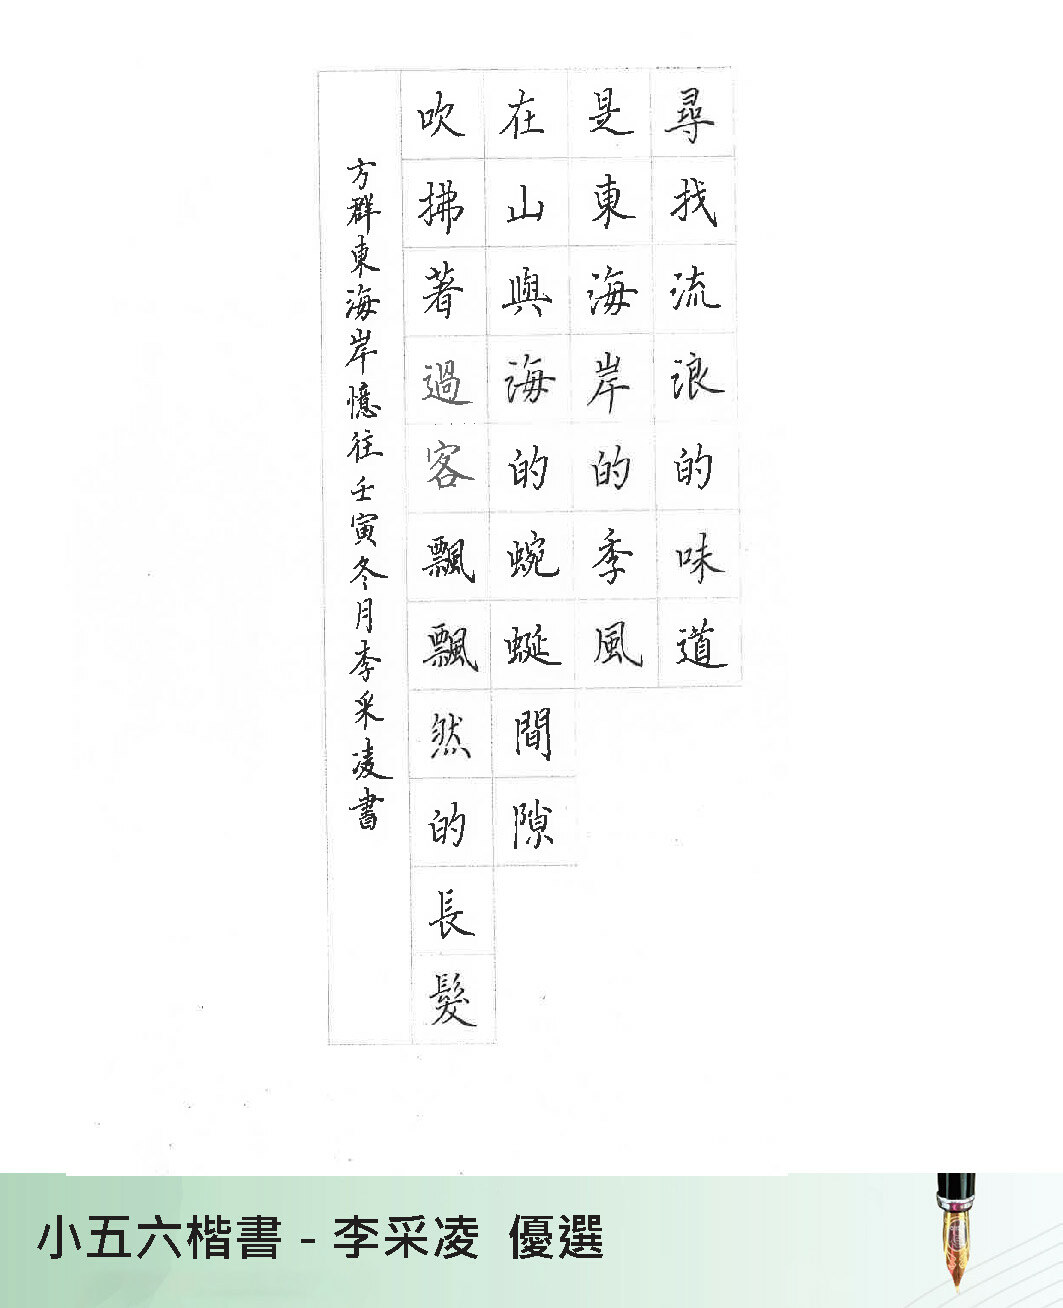 尋找流浪的味道
是東海岸的季風
在山與海的蜿蜒間隙
吹拂著過客飄飄然的長髮
方群東海岸憶往壬寅冬月李采凌書
小五六楷書 - 李采凌 優選